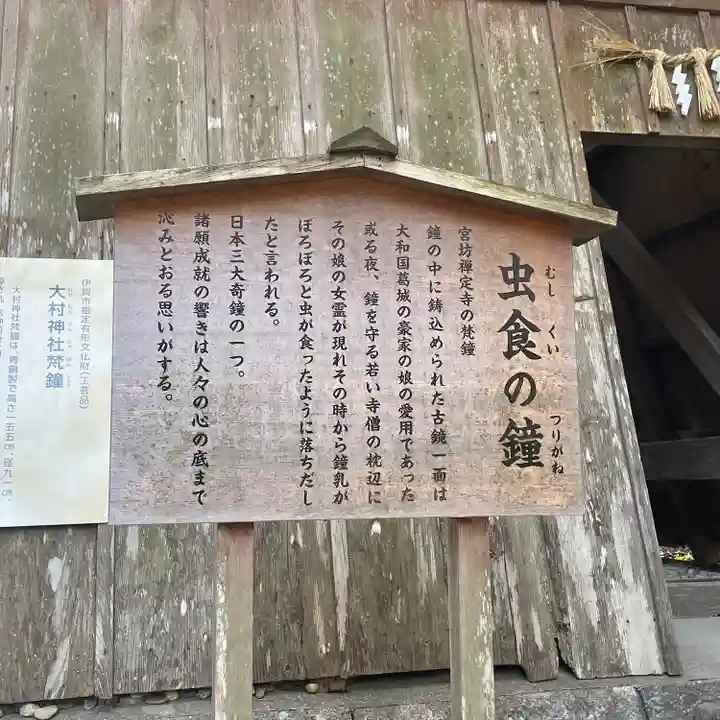 虫食の鐘
むしくい
つりがね
宮坊禅定寺の梵鐘
鐘の中に鋳込められた古鏡一面は
大和国葛城の豪家の娘の愛用であった
或る夜、鐘を守る若い寺僧の枕辺に
その娘の女霊が現れその時から鐘乳が
ぼろぼろと虫が食ったように落ちだし
たと言われる。
日本三大奇鐘の一つ。
諸願成就の響きは人々の心の底まで
沁みとおる思いがする。
伊賀市指定有形文化財(工芸品)
大村神社梵鐘
大村神社梵鐘は、青銅製で高さ一五五㎝、径九一㎝、